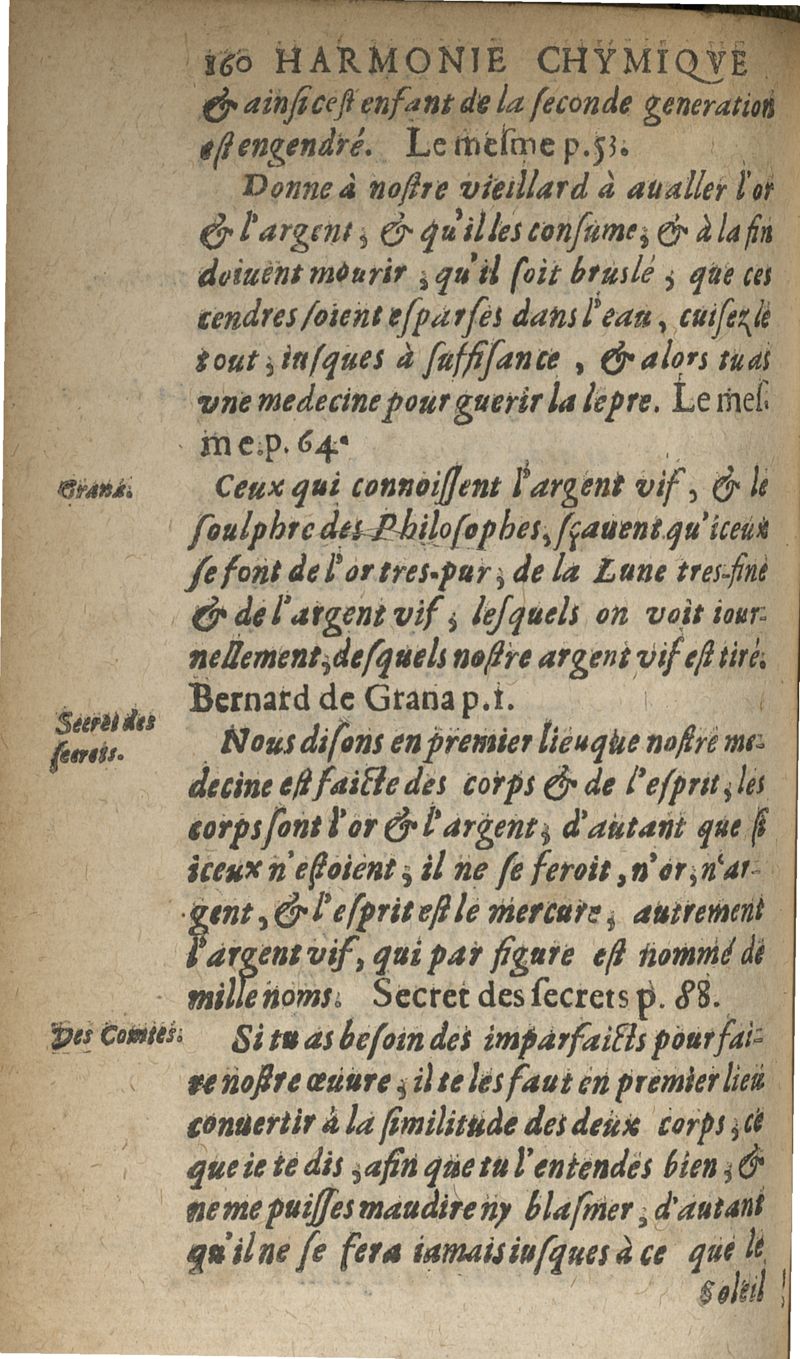 160 HARMONIE CHYMIQVE
& ainſi ceſt enfant de la ſeconde generation
eſt engendré. Le meſme p. 53.
Donne à noſtre vieillard à aualler l'or
& l'argent, & qu'il les conſume, & à la fin
doiuent mourir, qu'il ſoit bruslé, que ces
cendres ſoient eſparſes dans l'eau, cuiſez le
tout, iuſques à ſuffiſance, & alors tu as
vne medecine pour guerir la lepre. Le meſ-
me. p. 64.
Grana.
Ceux qui connoiſſent l'argent vif, & le
ſoulphre des Philoſophes, ſçauent qu'iceux
ſe font de l'or tres-pur, de la Lune tres-fine
& de l'argent vif, leſquels on voit iour-
nellement, deſquels noſtre argent vif eſt tiré.
Bernard de Grana p. 1.
Secret des
ſecrets.
Nous diſons en premier lieu que noſtre me-
decine eſt faicte des corps & de l'eſprit, les
corps ſont l'or & l'argent, d'autant que ſi
iceux n'eſtoient, il ne ſe feroit, n'or, n'ar-
gent, & l'eſprit eſt le mercure, autrement
l'argent vif, qui par figure eſt nommé de
mille noms. Secret des ſecrets p. 88.
Des Comtes.
Si tu as beſoin des imparfaicts pour fai-
re noſtre œuure, il te les faut en premier lieu
conuertir à la ſimilitude des deux corps, ce
que ie te dis, afin que tu l'entendes bien, &
ne me puiſſes maudire ny blaſmer, d'autant
qu'il ne ſe fera iamais iuſques à ce que le
Soleil